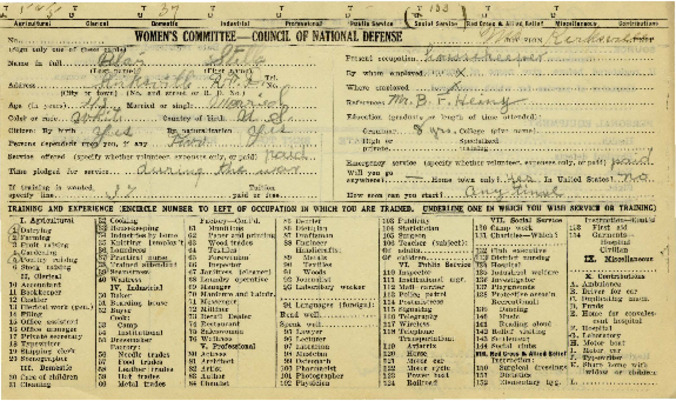 Agricultural Clerical Domestic Industrial Professional Public Service Social Service Red Cross & Allied Relief Miscellaneous Contributions
No. WOMEN'S COMMITTEE—COUNCIL OF NATIONAL DEFENSE
(Sign only one of these cards)
Name in full Stella Present occupation housekeeper
(Last name) (First name) By whom employed x
Address Kirksville Tel.
(City or town) (No. and street or R. D. No.) Where employed x
Age (in years) Married or single married References Mr. B. F. Heiny
Color or race white Country of birth U S Education (graduate or length of time attended):
Citizen: By birth yes By naturalization yes Grammar 8 yrs. College (give name)
Persons dependent upon you, if any Two High or private Specialized training
Service offered (specify whether volunteer, expenses only, or paid) paid Emergency service (specify whether volunteer, expenses only, or paid) paid
Time pledged for service during the war Will you go anywhere? — Home town only? yes In United States? no
If training is wanted, specify line 37 Tuition paid or free How soon can you start? Any time
TRAINING AND EXPERIENCE (ENCIRCLE NUMBER TO LEFT OF OCCUPATION IN WHICH YOU ARE TRAINED. UNDERLINE ONE IN WHICH YOU WISH SERVICE OR TRAINING)
I. Agricultural
Dairying
Farming
Fruit raising
Gardening
Poultry raising
Stock raising
II. Clerical
10 Accountant
11 Bookkeeper
12 Cashier
13 Clerical work (gen.)
14 Filing
15 Office assistant
16 Office manager
17 Private secretary
18 Typewriter
19 Shipping clerk
20 Stenographer
III. Domestic
30 Care of children
31 Cleaning
32 Cooking
33 Housekeeping
34 Industries by home
35 Knitting
36 Laundress
37 Practical nurse
38 Trained attendant
39 Seamstress
40 Waitress
IV. Industrial
50 Baker
51 Boarding house
52 Buyer
Cook:
53 Camp
54 Institutional
55 Dressmaker
Factory:
56 Needle trades
57 Food trades
58 Leather trades
59 Hat trades
60 Metal trades
Factory—Cont'd
61 Munitions
62 Paper and printing
63 Wood trades
64 Textiles
65 Forewoman
66 Inspector
67 Janitress (cleaner)
68 Laundry operative
69 Manager
70 Manicure and hairdr.
71 Messenger
72 Milliner
73 Retail Dealer
74 Restaurant
75 Saleswoman
76 Waitress
V. Professional
80 Actress
81 Architect
82 Artist
83 Author
84 Chemist
85 Dentist
86 Dietitian
87 Draftsman
88 Engineer
Handicrafts:
89 Metals
90 Textiles
91 Woods
92 Journalist
93 Laboratory worker
94 Languages (foreign):
Read well
Speak well
95 Lawyer
96 Lecturer
97 Librarian
98 Musician
99 Osteopath
100 Pharmacist
101 Photographer
102 Physician
103 Publicity
104 Statistician
105 Surgeon
106 Teacher (subject):
Of adults
Of children
VI. Public Service
110 Inspector
111 Institutional mgr.
112 Mail carrier
113 Police patrol
114 Postmistress
115 Signaling
116 Telegraphy
117 Wireless
118 Telephone
Transportation:
119 Aviatrix
120 Horse
121 Motor car
122 Motor cycle
123 Power boat
124 Railroad
VII. Social Service
130 Camp work
131 Charities—Which?
132 Club executive
133 District nursing
134 Hospital
135 Industrial welfare
136 Investigator
137 Playgrounds
138 Protective assocn.
Recreational:
139 Dancing
140 Music
141 Reading aloud
142 Relief visiting
143 Settlement
144 Social clubs
VIII. Red Cross & Allied Relief
Instruction:
150 Surgical dressings
151 Dietetics
152 Elementary hyg.
Instruction—Cont'd
153 First aid
Garments—
154 Hospital
Civilian
IX. Miscellaneous
X. Contributions
A. Ambulance
B. Driver for car
C. Duplicating mach.
D. Funds
E. Home for convalescent hospital
F. Hospital
G. Laboratory
H. Motor boat
I. Motor car
J. Typewriter
K. Share home with widow or children
L.